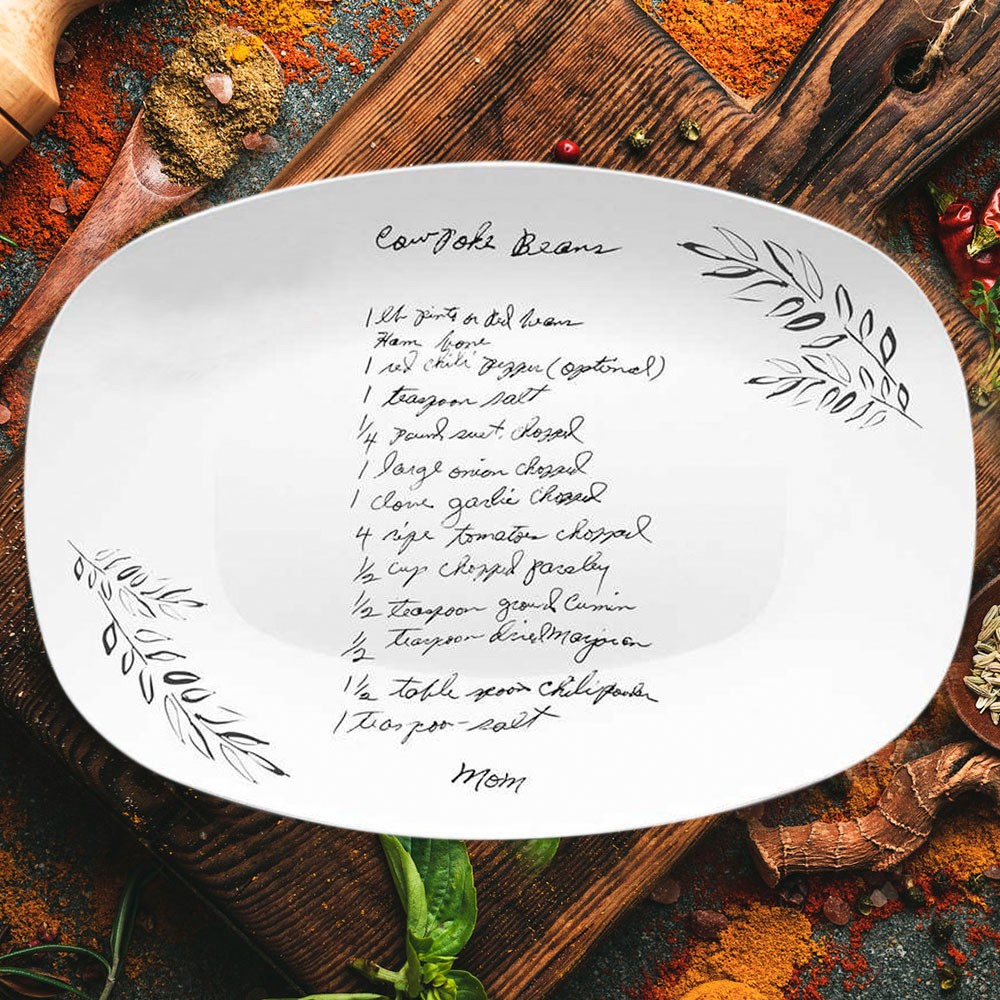 Cow Poke Beans
1 lb pinto or Red beans
Ham bone
1 red chili pepper (optional)
1 teaspoon salt
1/4 pound suet chopped
1 large onion chopped
1 clove garlic chopped
4 ripe tomatoes chopped
1/2 cup chopped parsley
1/2 teaspoon ground Cumin
1/2 teaspoon dried Marjoram
1 1/2 table spoon chili powder
1 teaspoon salt
Mom